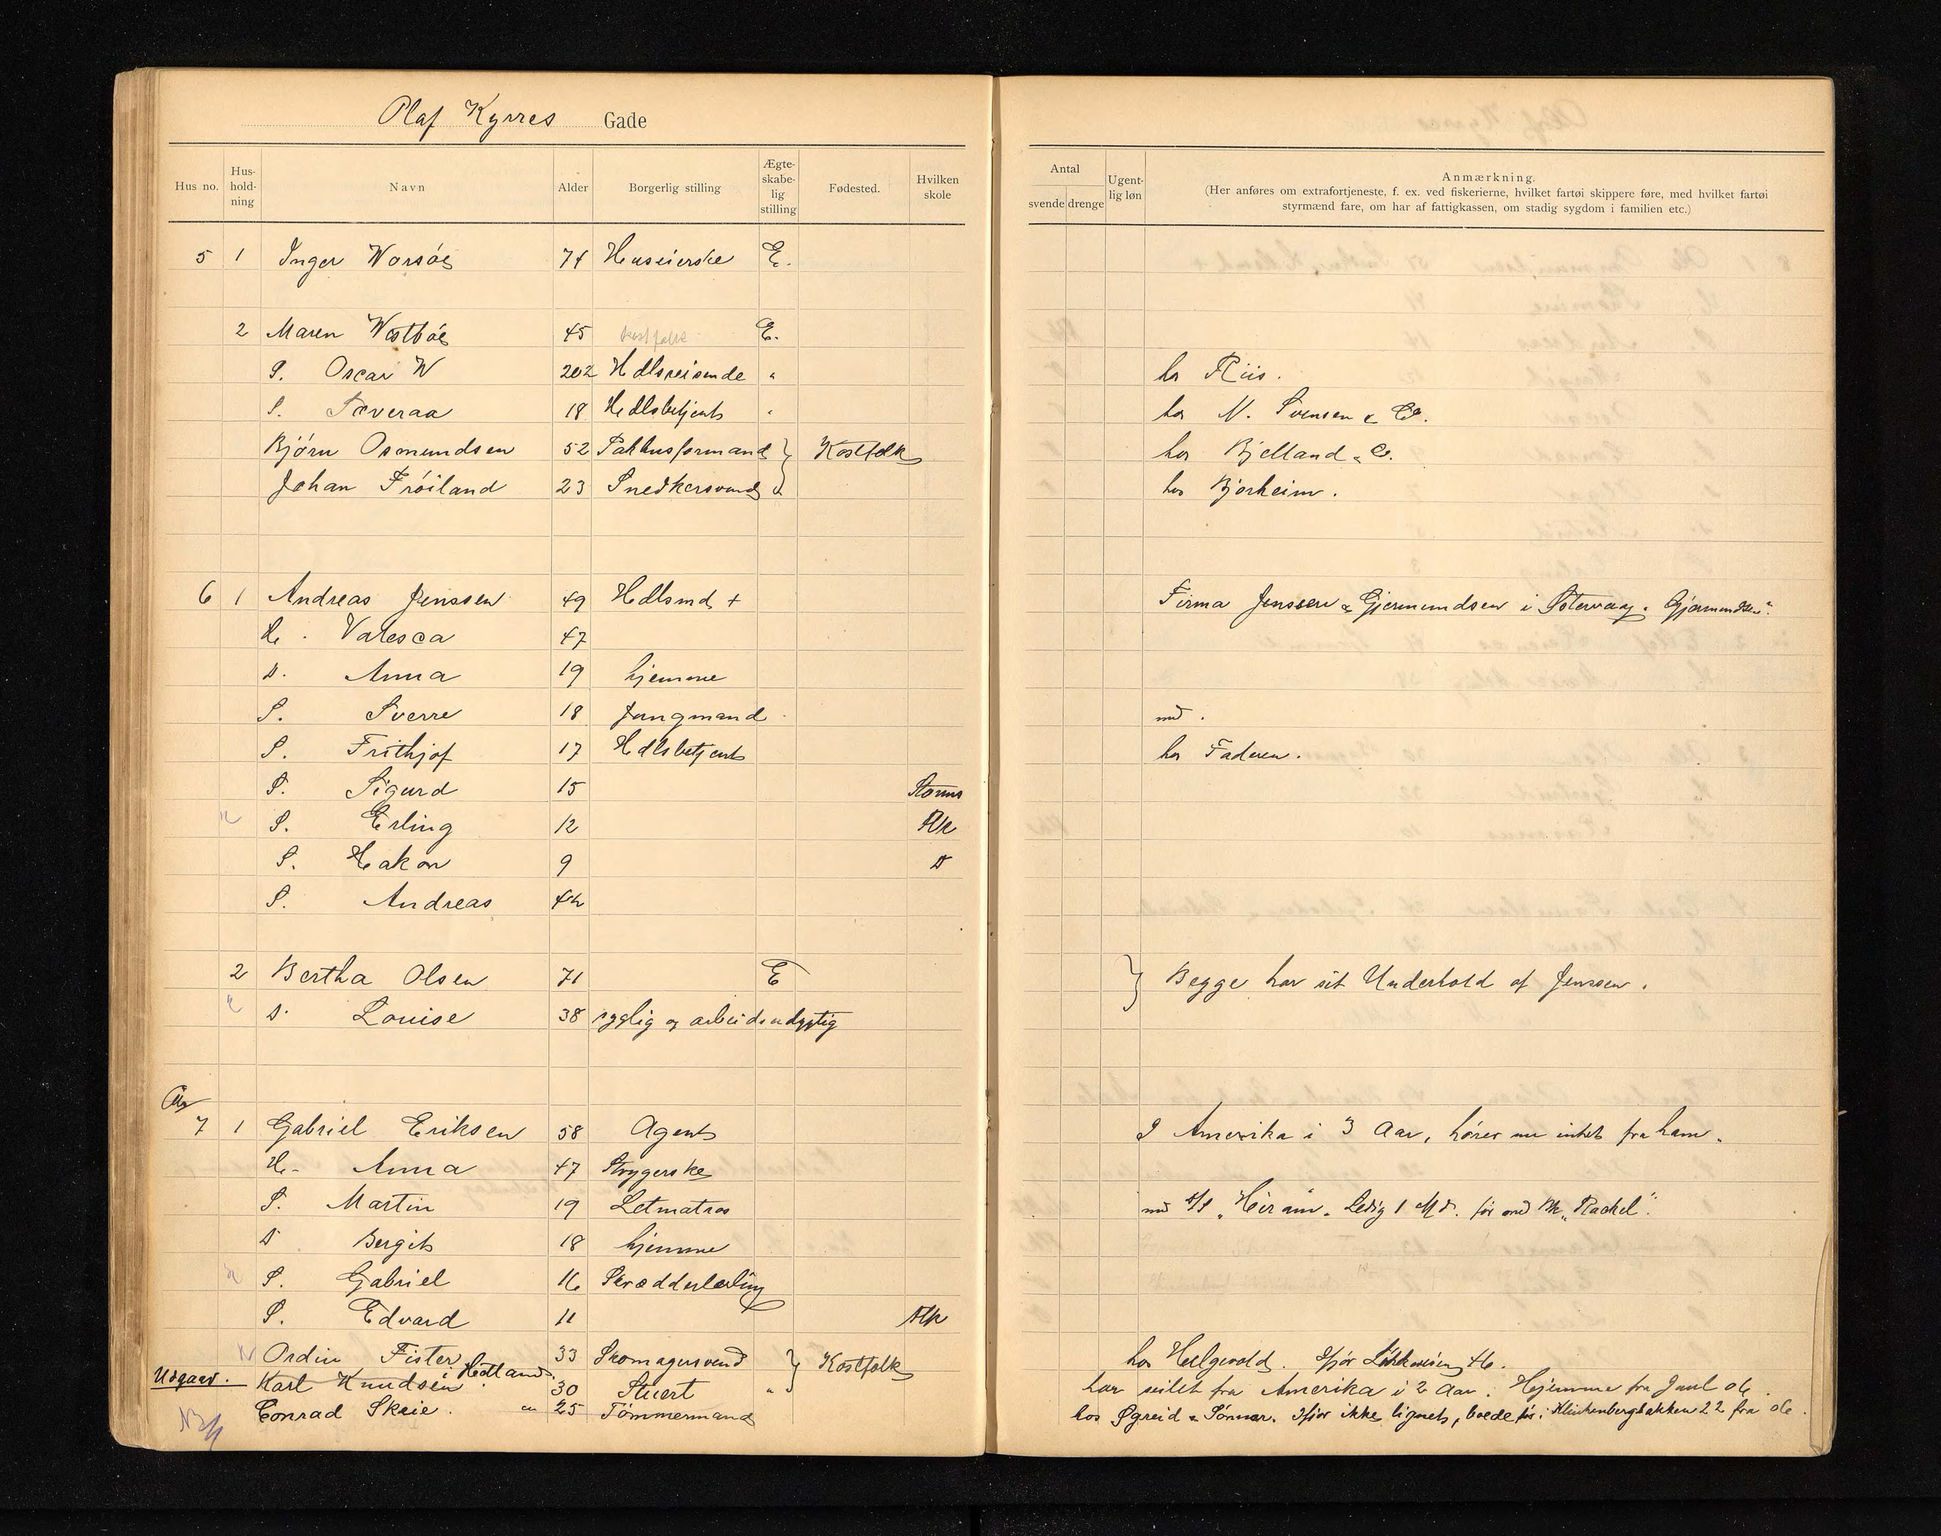 Olaf Kyrres Gade
Hus no. Hus-hold-ning Navn Alder Borgerlig stilling Ægte-skabe-lig stilling Fødested. Hvilken skole
Antal svende drenge Ugent-lig løn Anmærkning.
(Her anføres om extrafortjeneste, f. ex. ved fiskerierne, hvilket fartøi skippere føre, med hvilket fartøi
styrmænd fare, om har af fattigkassen, om stadig sygdom i familien etc.)
5 1 Inger Worsöe 74 Huseierske E.
2 Maren Westböe 45 Kostfolk E.
S. Oscar W 202 Hdlsreisende " hos Riis.
S. Sæveraa 18 Hdlsbetjent " hos M. Svensen & Co.
Bjørn Osmundsen 52 Pakhusformand } Kostfolk hos Bjelland & Co.
Johan Fröiland 23 Snedkersvend hos Bjorheim.
6 1 Andreas Jenssen 49 Hdlsmd + Firma Jenssen & Gjermundsen i Østervaag. Gjermundsen".
H. Valesca 47
D. Anna 19 hjemme
S. Sverre 18 Jungmand med.
S. Frithjof 17 Hdlsbetjent hos Faderen.
S. Sigurd 15 Storms
S. Erling 12 Flk
S. Hakon 9 D
S. Andreas 4½
2 Bertha Olsen 71 E } Begge har sit Underhold af Jenssen.
D. Louise 38 syglig og arbeidsudygtig
7 1 Gabriel Eriksen 58 Agent I Amerika i 3 Aar, hører nu intet fra ham.
H. Anna 47 Strygerske
S. Martin 19 Letmatros med S/S "Hiram". Ledig 1 Md. før med Bk "Rackel".
D Bergit 18 hjemme
S. Gabriel 16 Skrædderlærling
S. Edvard 11 Flk
Ordin Fister 33 Skomagersvend } Kostfolk hos Helgevold. Ifjor
Udgaar. Karl Knudsen Hetland. 30 Stuert " har seilet fra Amerika i 2 Aar. Hjemme fra Juul
Conrad Skeie. 25 Tömmermand hos Øgreid & Sönner. Ifjor ikke lignet, boede før i Klinkenbergbakken 22 fra